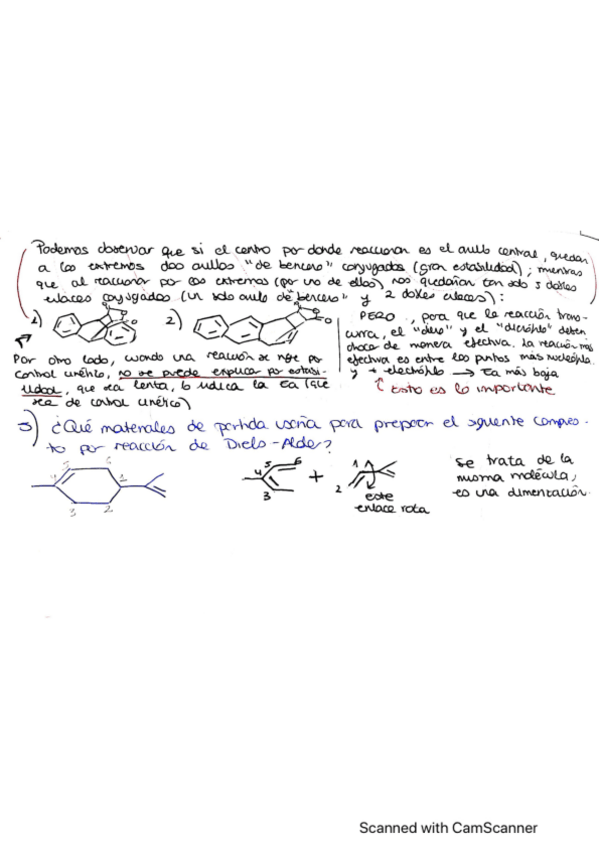 Podemos observar que si el centro por donde reaccionan es el anillo central, quedan
a los extremos dos anillos "de benceno" conjugados (gran estabilidad); mientras
que al reaccionar por los extremos (por uno de ellos), nos quedarían tan solo 5 dobles
enlaces conjugados (un solo anillo de "benceno" y 2 dobles enlaces):
1)
2)
PERO, para que la reacción trans-
curra, el "dieno" y el "dienófilo" deben
chocar de manera efectiva. La reacción más
efectiva es entre los puntos más nucleófilo
y + electrófilo → Ea más baja
↑ Esto es lo importante
Por otro lado, cuando una reacción se rige por
control cinético, no se puede explicar por estabi-
lidad, que sea lenta, lo indica la Ea (que
sea de control cinético)
5) ¿Qué materiales de partida usaría para preparar el siguiente compues-
to por reacción de Diels-Alder?
5 6
4 1
3 2
5 6
4
3
+
1
2
este
enlace rota
se trata de la
misma molécula,
es una dimerización.
Scanned with CamScanner